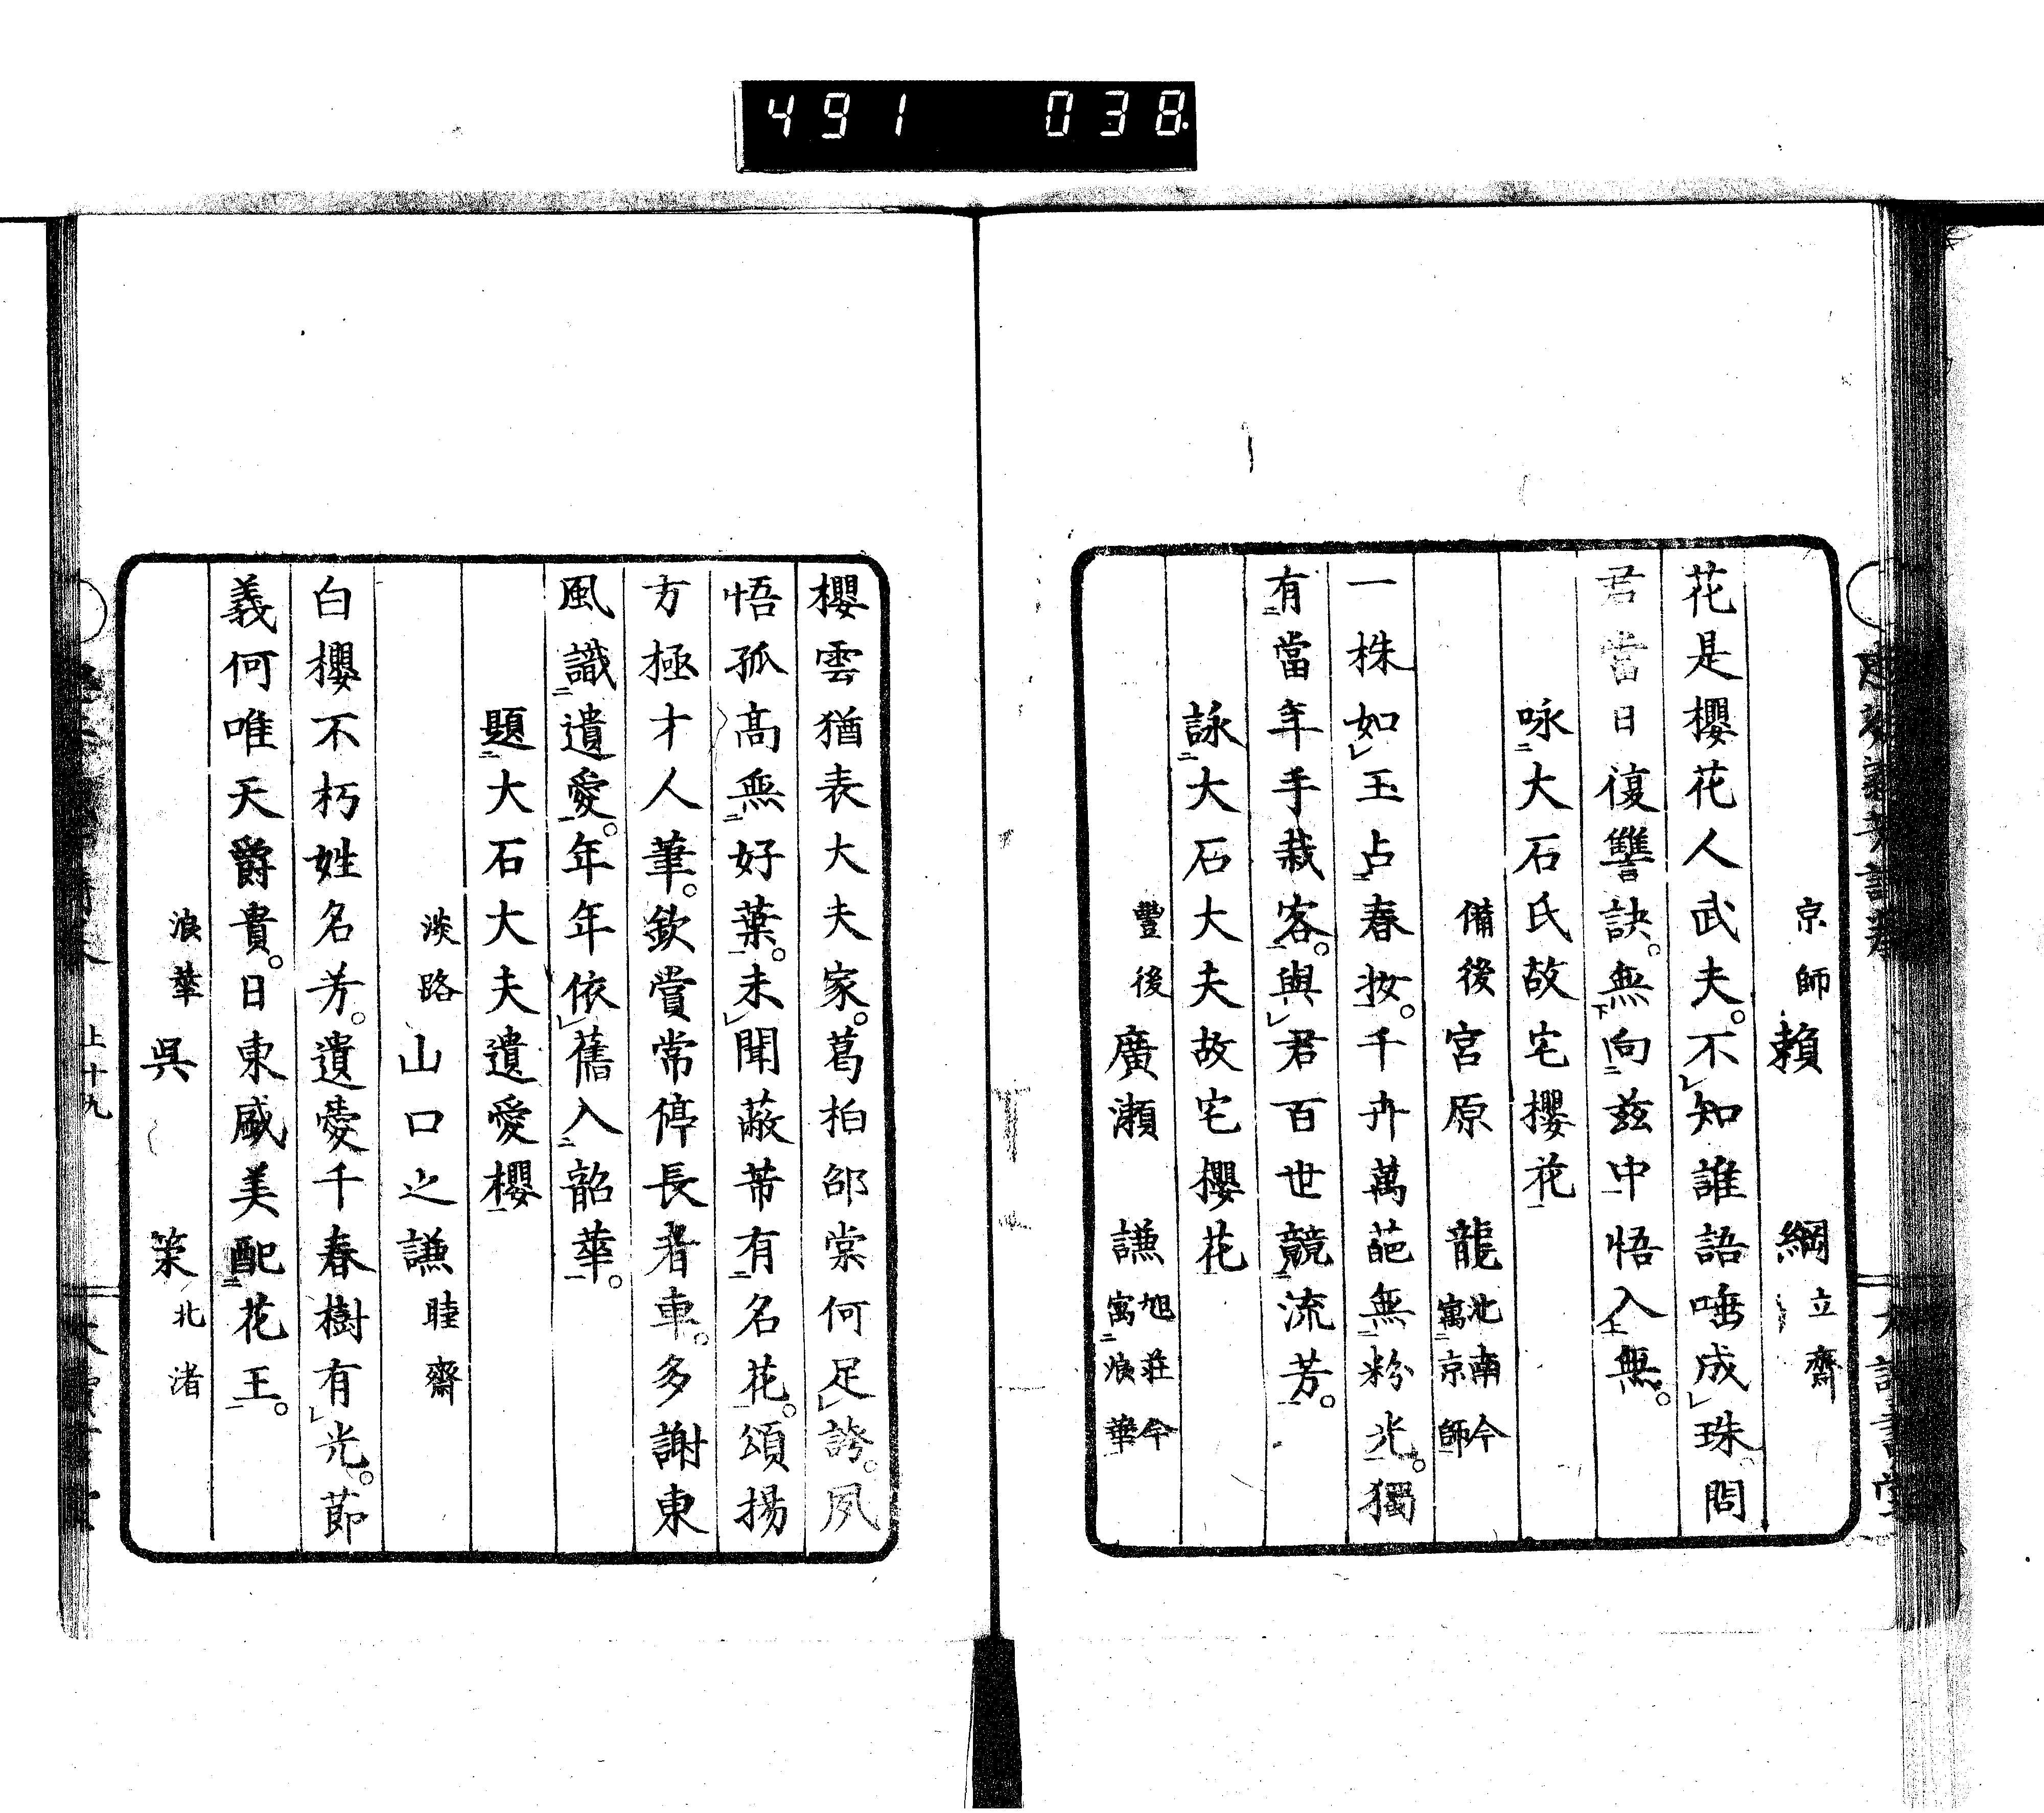 491 038
京師 賴 綱 立齋
花是櫻花人武夫。不知誰語唾成珠。問
君當日復讐訣。無向茲中悟入無。
咏大石氏故宅櫻花
備後 宮原 龍 北南今寓京師
一株如玉占春妝。千卉萬葩無粉光。獨
有當年手栽客。與君百世競流芳。
詠大石大夫故宅櫻花
豐後 廣瀨 謙 旭莊今寓浪華
櫻雲猶表大夫家。葛柏邵棠何足誇。夙
悟孤高無好葉。未聞蔽芾有名花。頌揚
方極才人筆。欽賞常停長者車。多謝東
風識遺愛。年年依舊入韶華。
題大石大夫遺愛櫻
淡路 山口之謙 睦齋
白櫻不朽姓名芳。遺愛千春樹有光。節
義何唯天爵貴。日東威美配花王。
浪華 吳 策 北渚
上十九